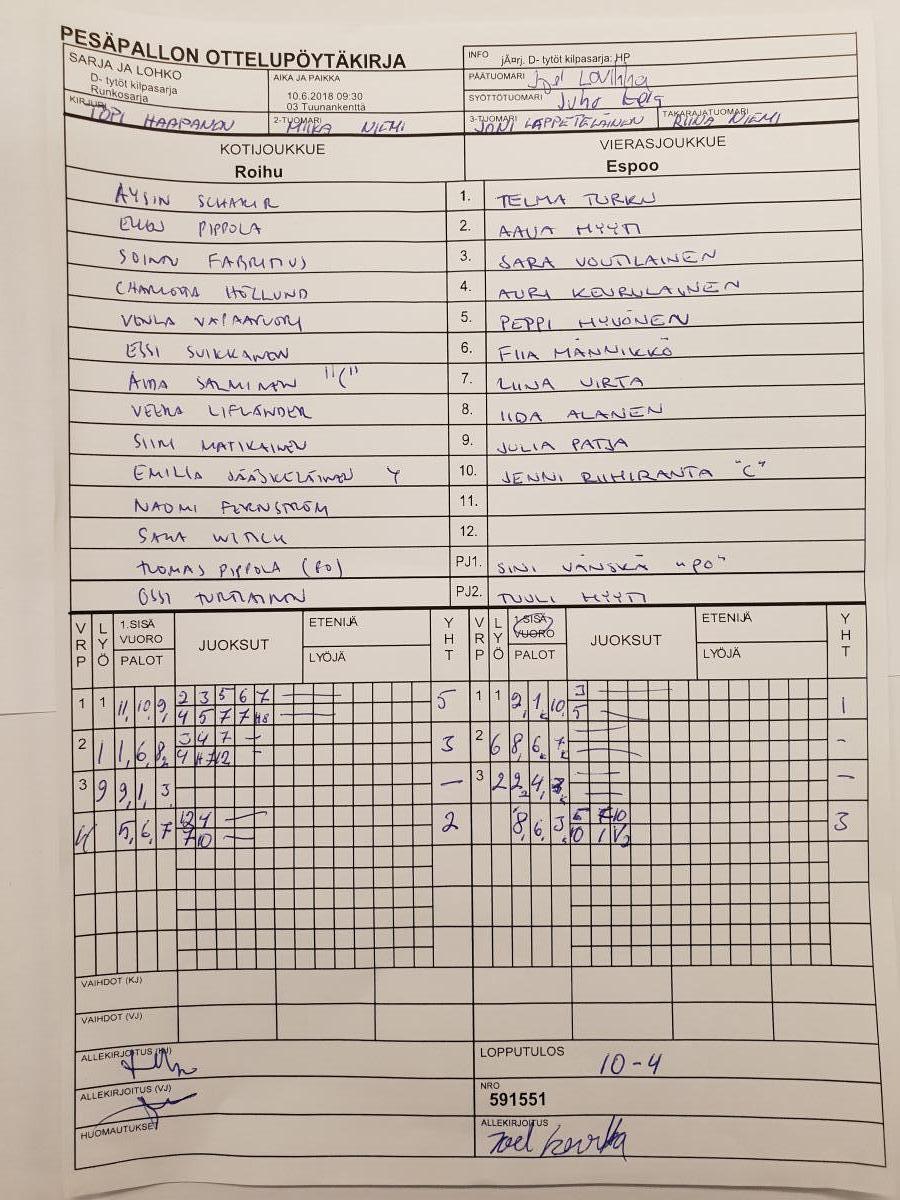 PESÄPALLON OTTELUPÖYTÄKIRJA
SARJA JA LOHKO
D- tytöt kilpasarja
Runkosarja
AIKA JA PAIKKA
10.6.2018 09:30
03 Tuunankenttä
INFO jÃ¤rj. D- tytöt kilpasarja: HP
PÄÄTUOMARI Joel
SYÖTTÖTUOMARI Juho
KIRJURI TOPI HAAPANEN
2-TUOMARI MIIKA NIEMI
3-TUOMARI JONI LAPPETELÄINEN
TAKARAJATUOMARI RIINA NIEMI
KOTIJOUKKUE
Roihu
VIERASJOUKKUE
Espoo
AYSIN SCHAKIR 1. TELMA TURKU
ELLEN PIPPOLA 2. AAVA HYYTI
SOINNU FABRITIUS 3. SARA VOUTILAINEN
CHARLOTTA HÖGLUND 4. AURI KEURULAINEN
VENLA VAPAAVUORI 5. PEPPI HYVÖNEN
ESSI SUIKKANEN 6. FIIA MÄNNIKKÖ
AIDA SALMINEN "C" 7. LIINA VIRTA
VEERA LIFLÄNDER 8. IIDA ALANEN
SIIRI MATIKAINEN 9. JULIA PATJA
EMILIA JÄÄSKELÄINEN Y 10. JENNI RIIHIRANTA "C"
NAOMI FERNSTRÖM 11.
SARA WINCK 12.
TUOMAS PIPPOLA (PO) PJ1. SINI VÄNSKÄ "PO"
OSSI TURTIAINEN PJ2. TUULI HYYTI
VRP LYÖ 1.SISÄ VUORO PALOT JUOKSUT ETENIJÄ LYÖJÄ YHT VRP LYÖ 1.SISÄ VUORO PALOT JUOKSUT ETENIJÄ LYÖJÄ YHT
1 1 11, 10, 9, 2 3 5 6 7 5 1 1 9, 1, 10, 3 1
4 5 7 7 H8 5
2 1 1, 6, 8, 3 4 7 - 3 2 6 8, 6, 7 -
4 H7 12 -
3 9 9, 1, 3 — 3 2 2, 4, 3 -
4 5, 6, 7 12 4 2 8, 6, 3 5 7 10 3
7 10 10 1 1/2
VAIHDOT (KJ)
VAIHDOT (VJ)
ALLEKIRJOITUS (KJ)
LOPPUTULOS 10-4
ALLEKIRJOITUS (VJ)
NRO
591551
HUOMAUTUKSET
ALLEKIRJOITUS Joel